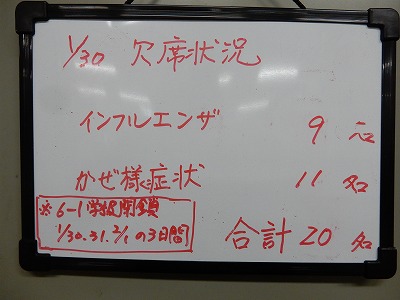 1/30 欠席状況
インフルエンザ 9名
かぜ様症状 11名
※6-1学級閉鎖
1/30.31.2/1の3日間
合計20名